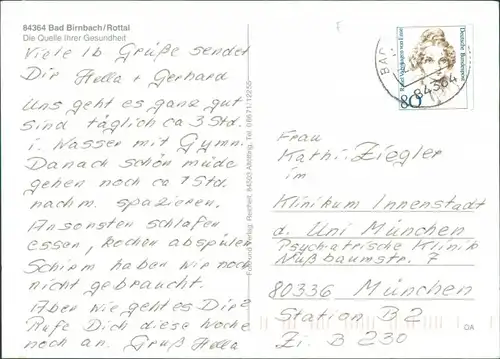 84364 Bad Birnbach/Rottal
Die Quelle Ihrer Gesundheit
Viele lb Grüße sendet
Dir Hella + Gerhard
Uns geht es ganz gut
sind täglich ca 3 Std.
i. Wasser mit Gymn.
Danach schön müde
gehen noch ca 1 Std.
nachm. spazieren.
Ansonsten schlafen
essen, kochen abspülen
Schirm haben wir noch
nicht gebraucht.
Aber wie geht es Dir?
Rufe Dich diese Woche
noch an. Gruß Hella
Reichelt, 84503 Altötting, Tel. 08671/12255
Deutsche Bundespost
Rahel Varnhagen von Ense
80
BAD
84364
Frau
Kathi Ziegler
im
Klinikum Innenstadt
d. Uni München
Psychiatrische Klinik
Nußbaumstr. 7
80336 München
Station B 2
Zi. B 230
OA